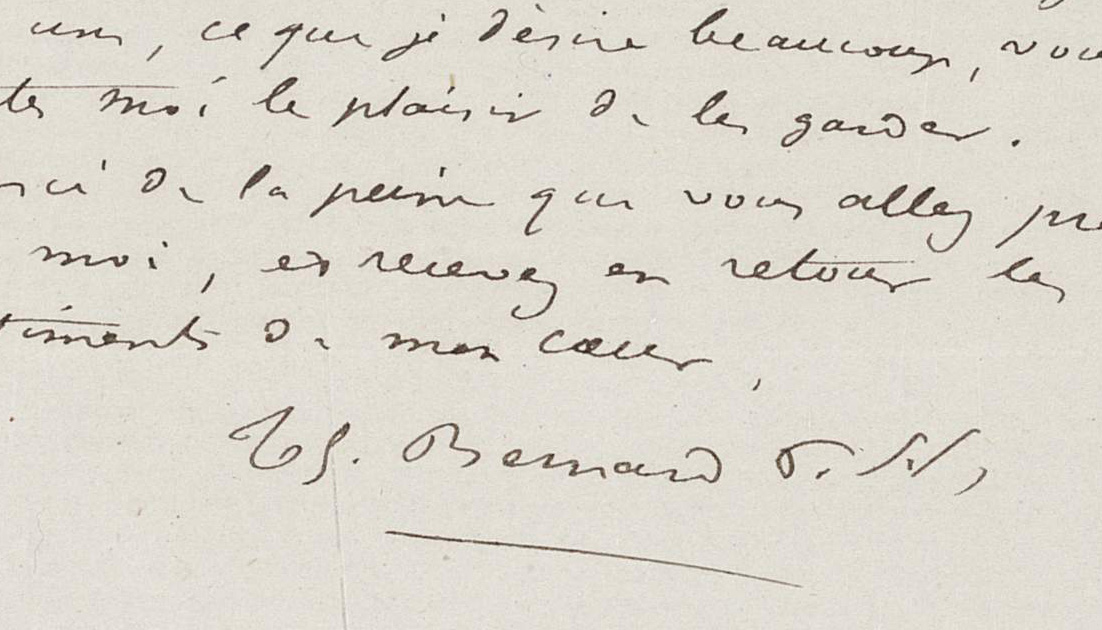 uns, ce que je désire beaucoup, vou
tes moi le plaisir de les garder.
rci de la peine que vous allez pre
moi, et recevez en retour les
timents de mon cœur,
Bernard